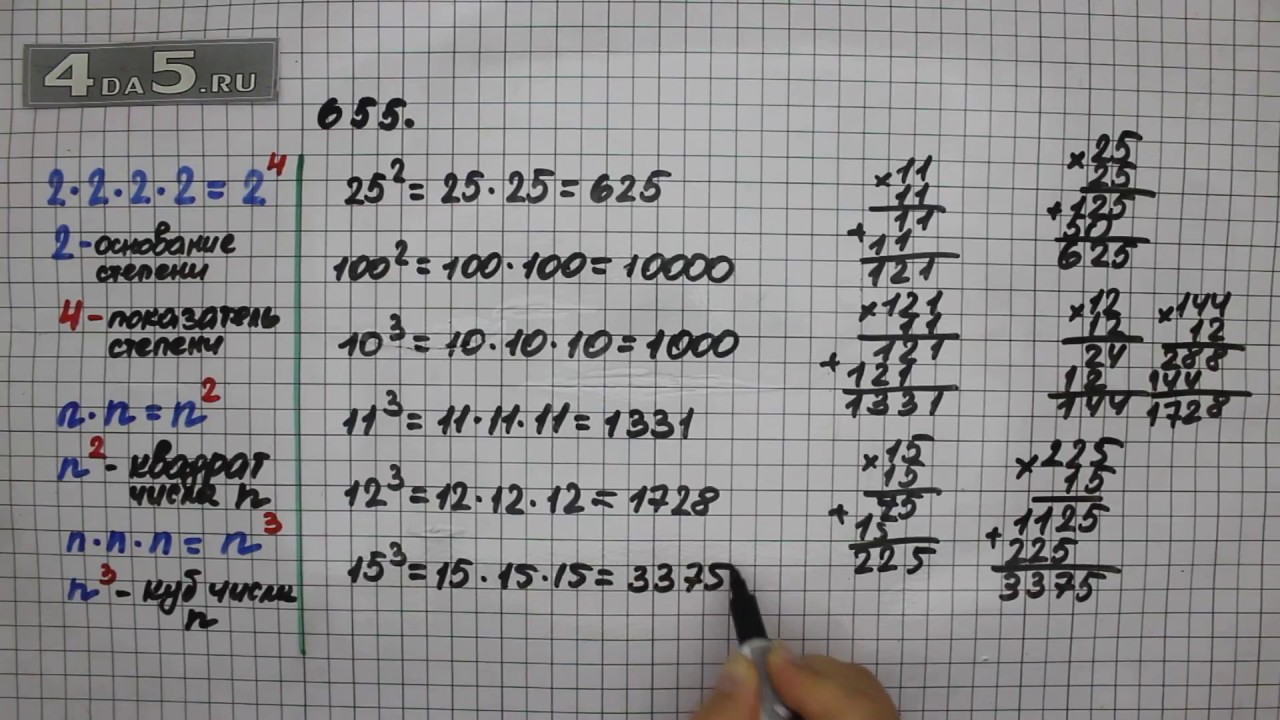 4DA5.RU
655.
2·2·2·2=2⁴
2-основание
степени
4-показатель
степени
n·n=n²
n²-квадрат
числа n
n·n·n=n³
n³-куб числа
n
25²=25·25=625
100²=100·100=10000
10³=10·10·10=1000
11³=11·11·11=1331
12³=12·12·12=1728
15³=15·15·15=3375
×11
11
11
+11
121
×25
25
+125
50
625
×121
11
121
+121
1331
×12
12
24
12
144
×144
12
288
144
1728
×15
15
75
+15
225
×225
15
+1125
225
3375